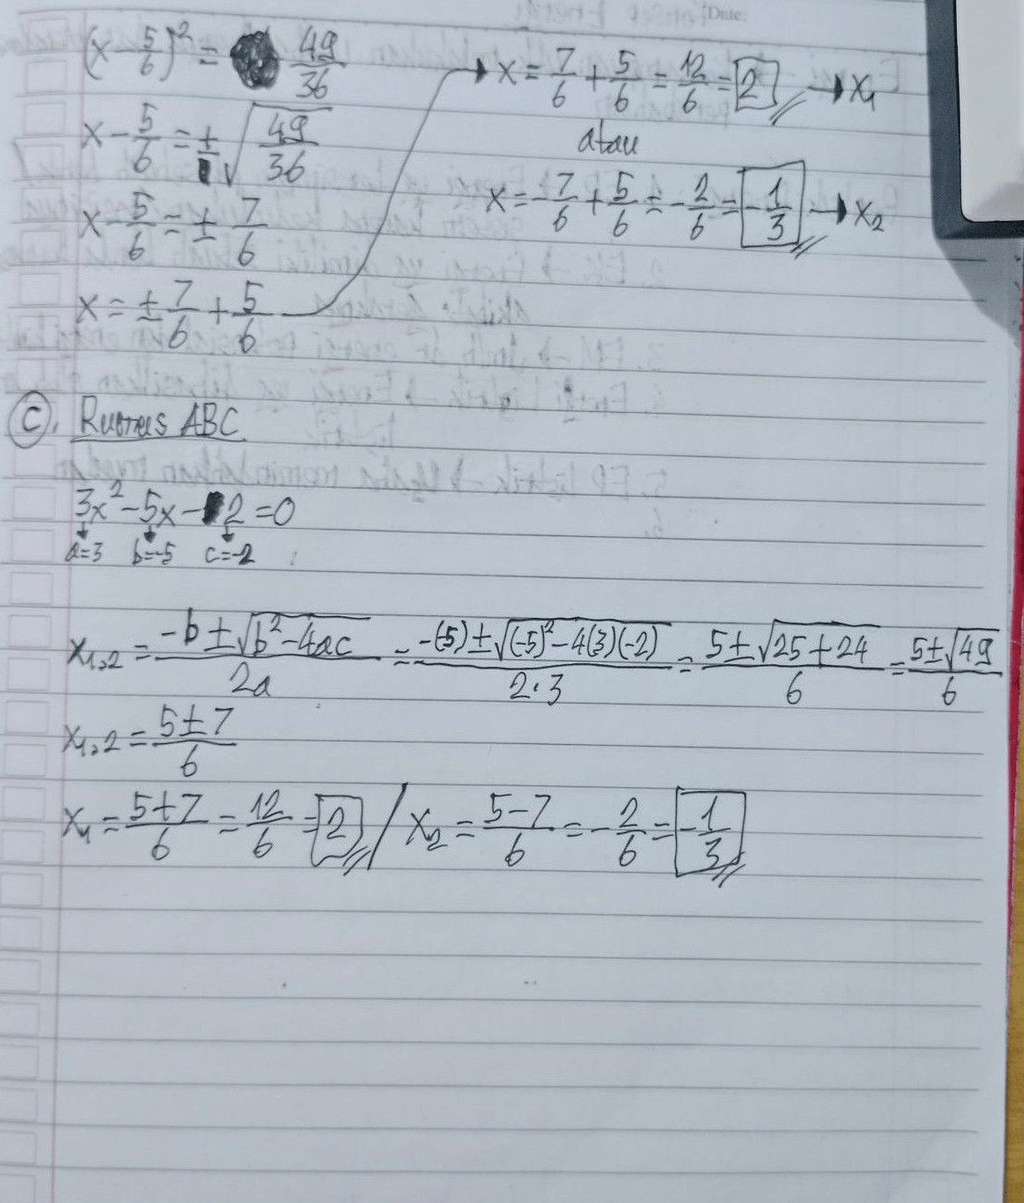 Date:
(x - 5/6)² = 49/36
x - 5/6 = ± √(49/36)
x - 5/6 = ± 7/6
x = ± 7/6 + 5/6
→ x = 7/6 + 5/6 = 12/6 = 2 → x₁
atau
x = -7/6 + 5/6 = -2/6 = -1/3 → x₂
C. Rumus ABC
3x² - 5x - 2 = 0
a=3 b=-5 c=-2
x₁,₂ = (-b ± √(b² - 4ac))/2a = (-(-5) ± √((-5)² - 4(3)(-2)))/2·3 = (5 ± √(25 + 24))/6 = (5 ± √49)/6
x₁,₂ = (5 ± 7)/6
x₁ = (5 + 7)/6 = 12/6 = 2 / x₂ = (5 - 7)/6 = -2/6 = -1/3